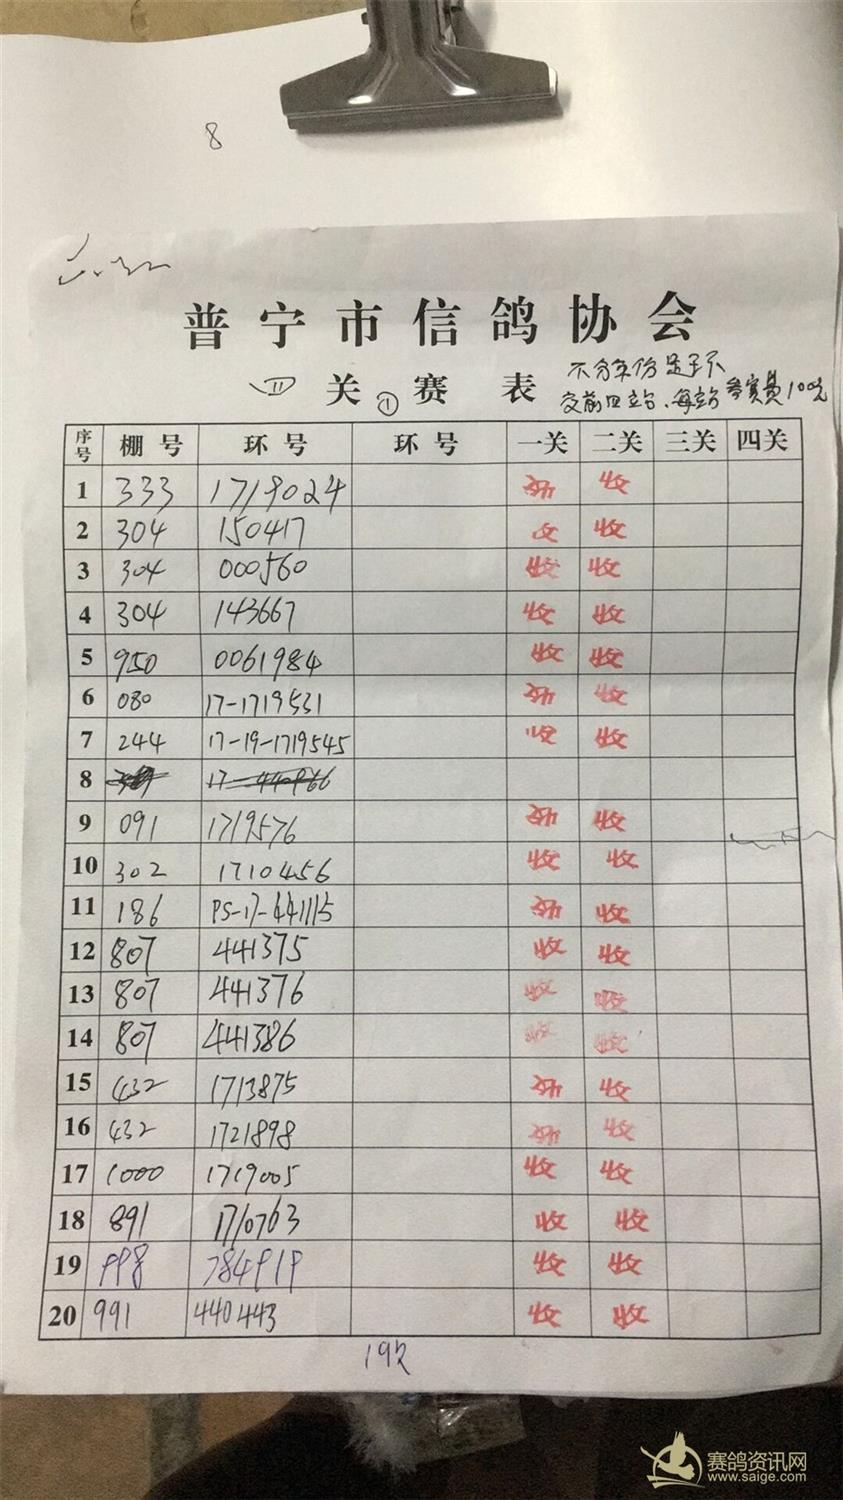 8
普宁市信鸽协会
四关①赛表 不分年份是否不
交前四站、每站参赛费100元
序号 棚号 环号 环号 一关 二关 三关 四关
1 333 1719024 收 收
2 304 150417 收 收
3 304 000560 收 收
4 304 143667 收 收
5 950 0061984 收 收
6 080 17-1719531 收 收
7 244 17-19-1719545 收 收
8
9 091 1719576 收 收
10 302 1710456 收 收
11 186 PS-17-441115 收 收
12 807 441375 收 收
13 807 441376 收 收
14 807 441386 收 收
15 432 1713875 收 收
16 432 1721898 收 收
17 1000 1719005 收 收
18 891 1710763 收 收
19 998 784919 收 收
20 991 440443 收 收
192
赛鸽资讯网
www.saige.com